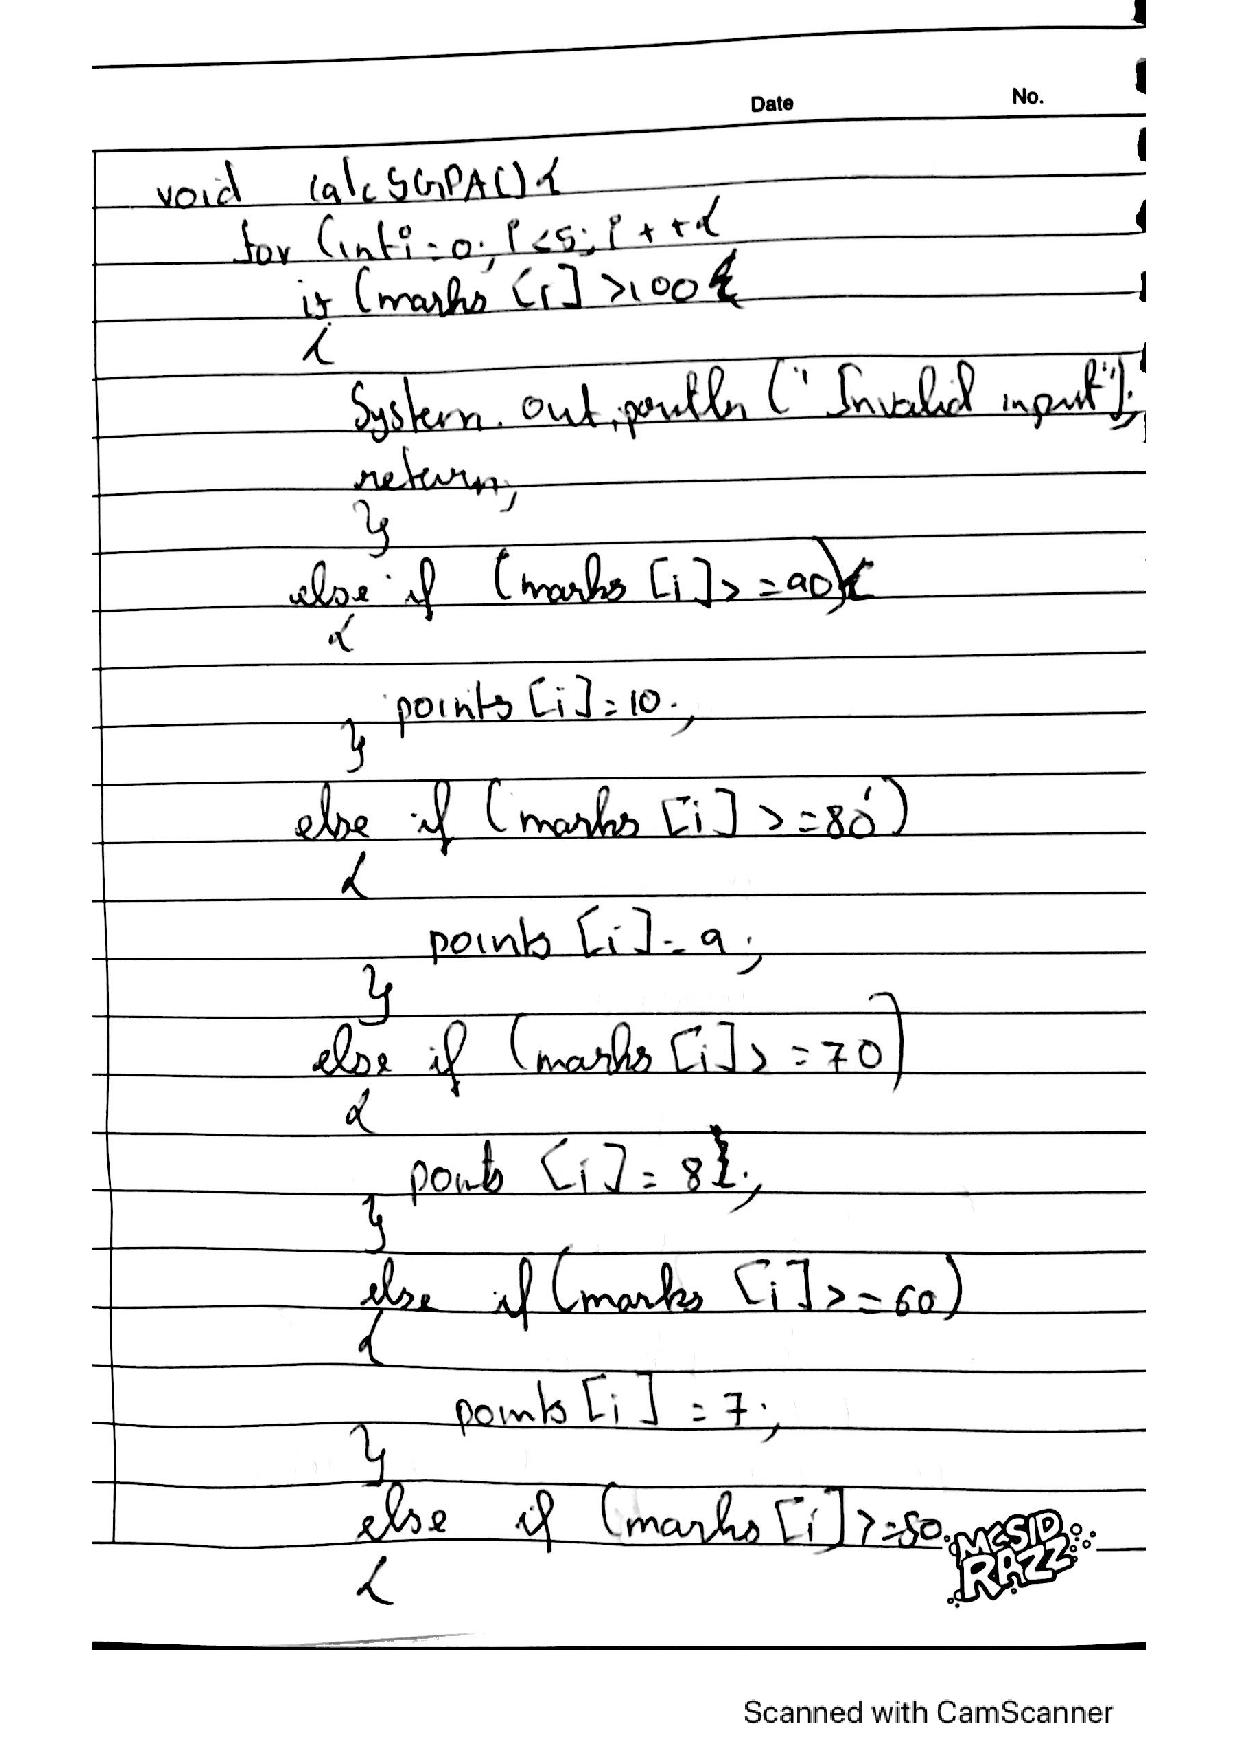 Date No.
void calcSGPA(){
for (int i=0; i<5; i++{
if (marks [i] >100
{
System.out.println ("Invalid input");
return;
}
else if (marks [i] >=90){
{
points [i]=10;
}
else if (marks [i] >=80)
{
points [i]=9;
}
else if (marks [i] >=70)
{
points [i] = 8;
}
else if (marks [i] >=60)
{
points [i] = 7;
}
else if (marks [i] >=50
{
MCSID
RAZZ
Scanned with CamScanner